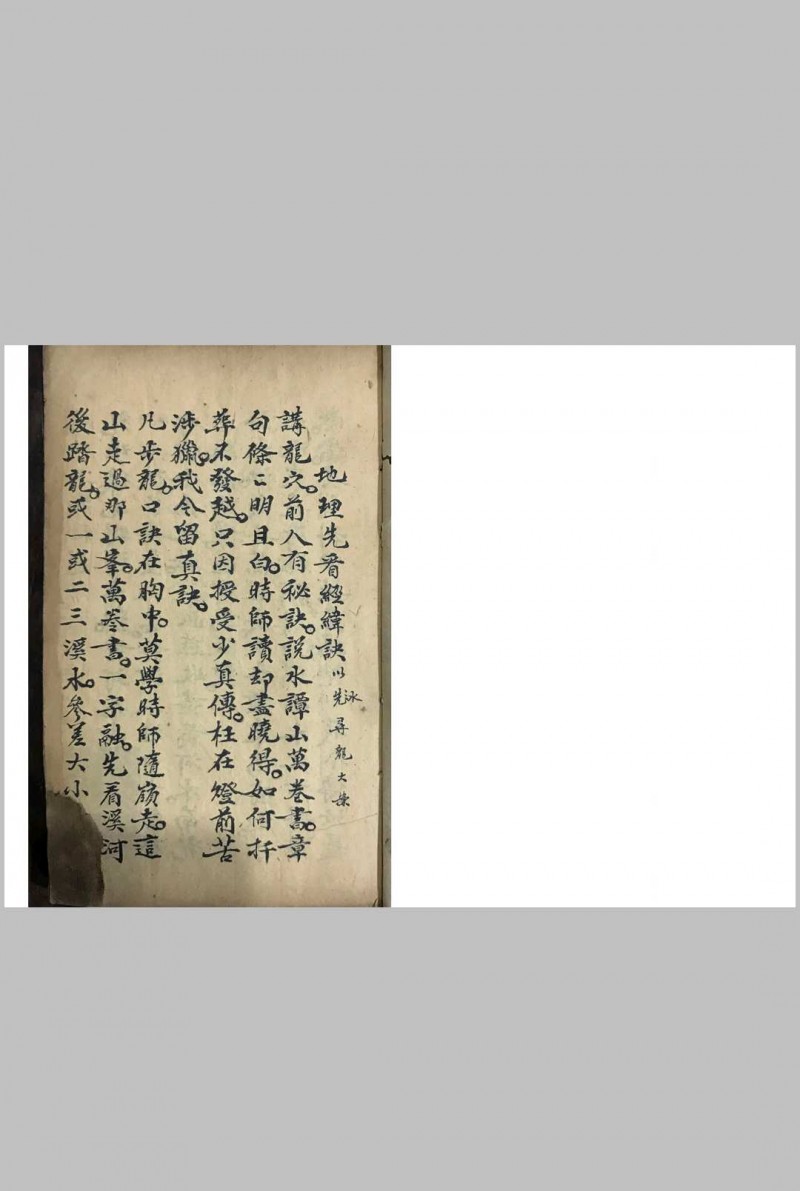 地理先看經緯訣 以先尋龍大
泳
講龍穴。前人有秘訣。說水譚山萬卷書。章
句條〻明且白。時師讀却盡曉得。如何扦
葬不發越。只因授受少真傳。枉在燈前苦
涉獵。我今留真訣。
凡步龍。口訣在胸中。莫學時師隨嶺走。這
山走過那山峯。萬卷書。一字融。先看溪河
後踏龍。或一或二三溪水。參差大小